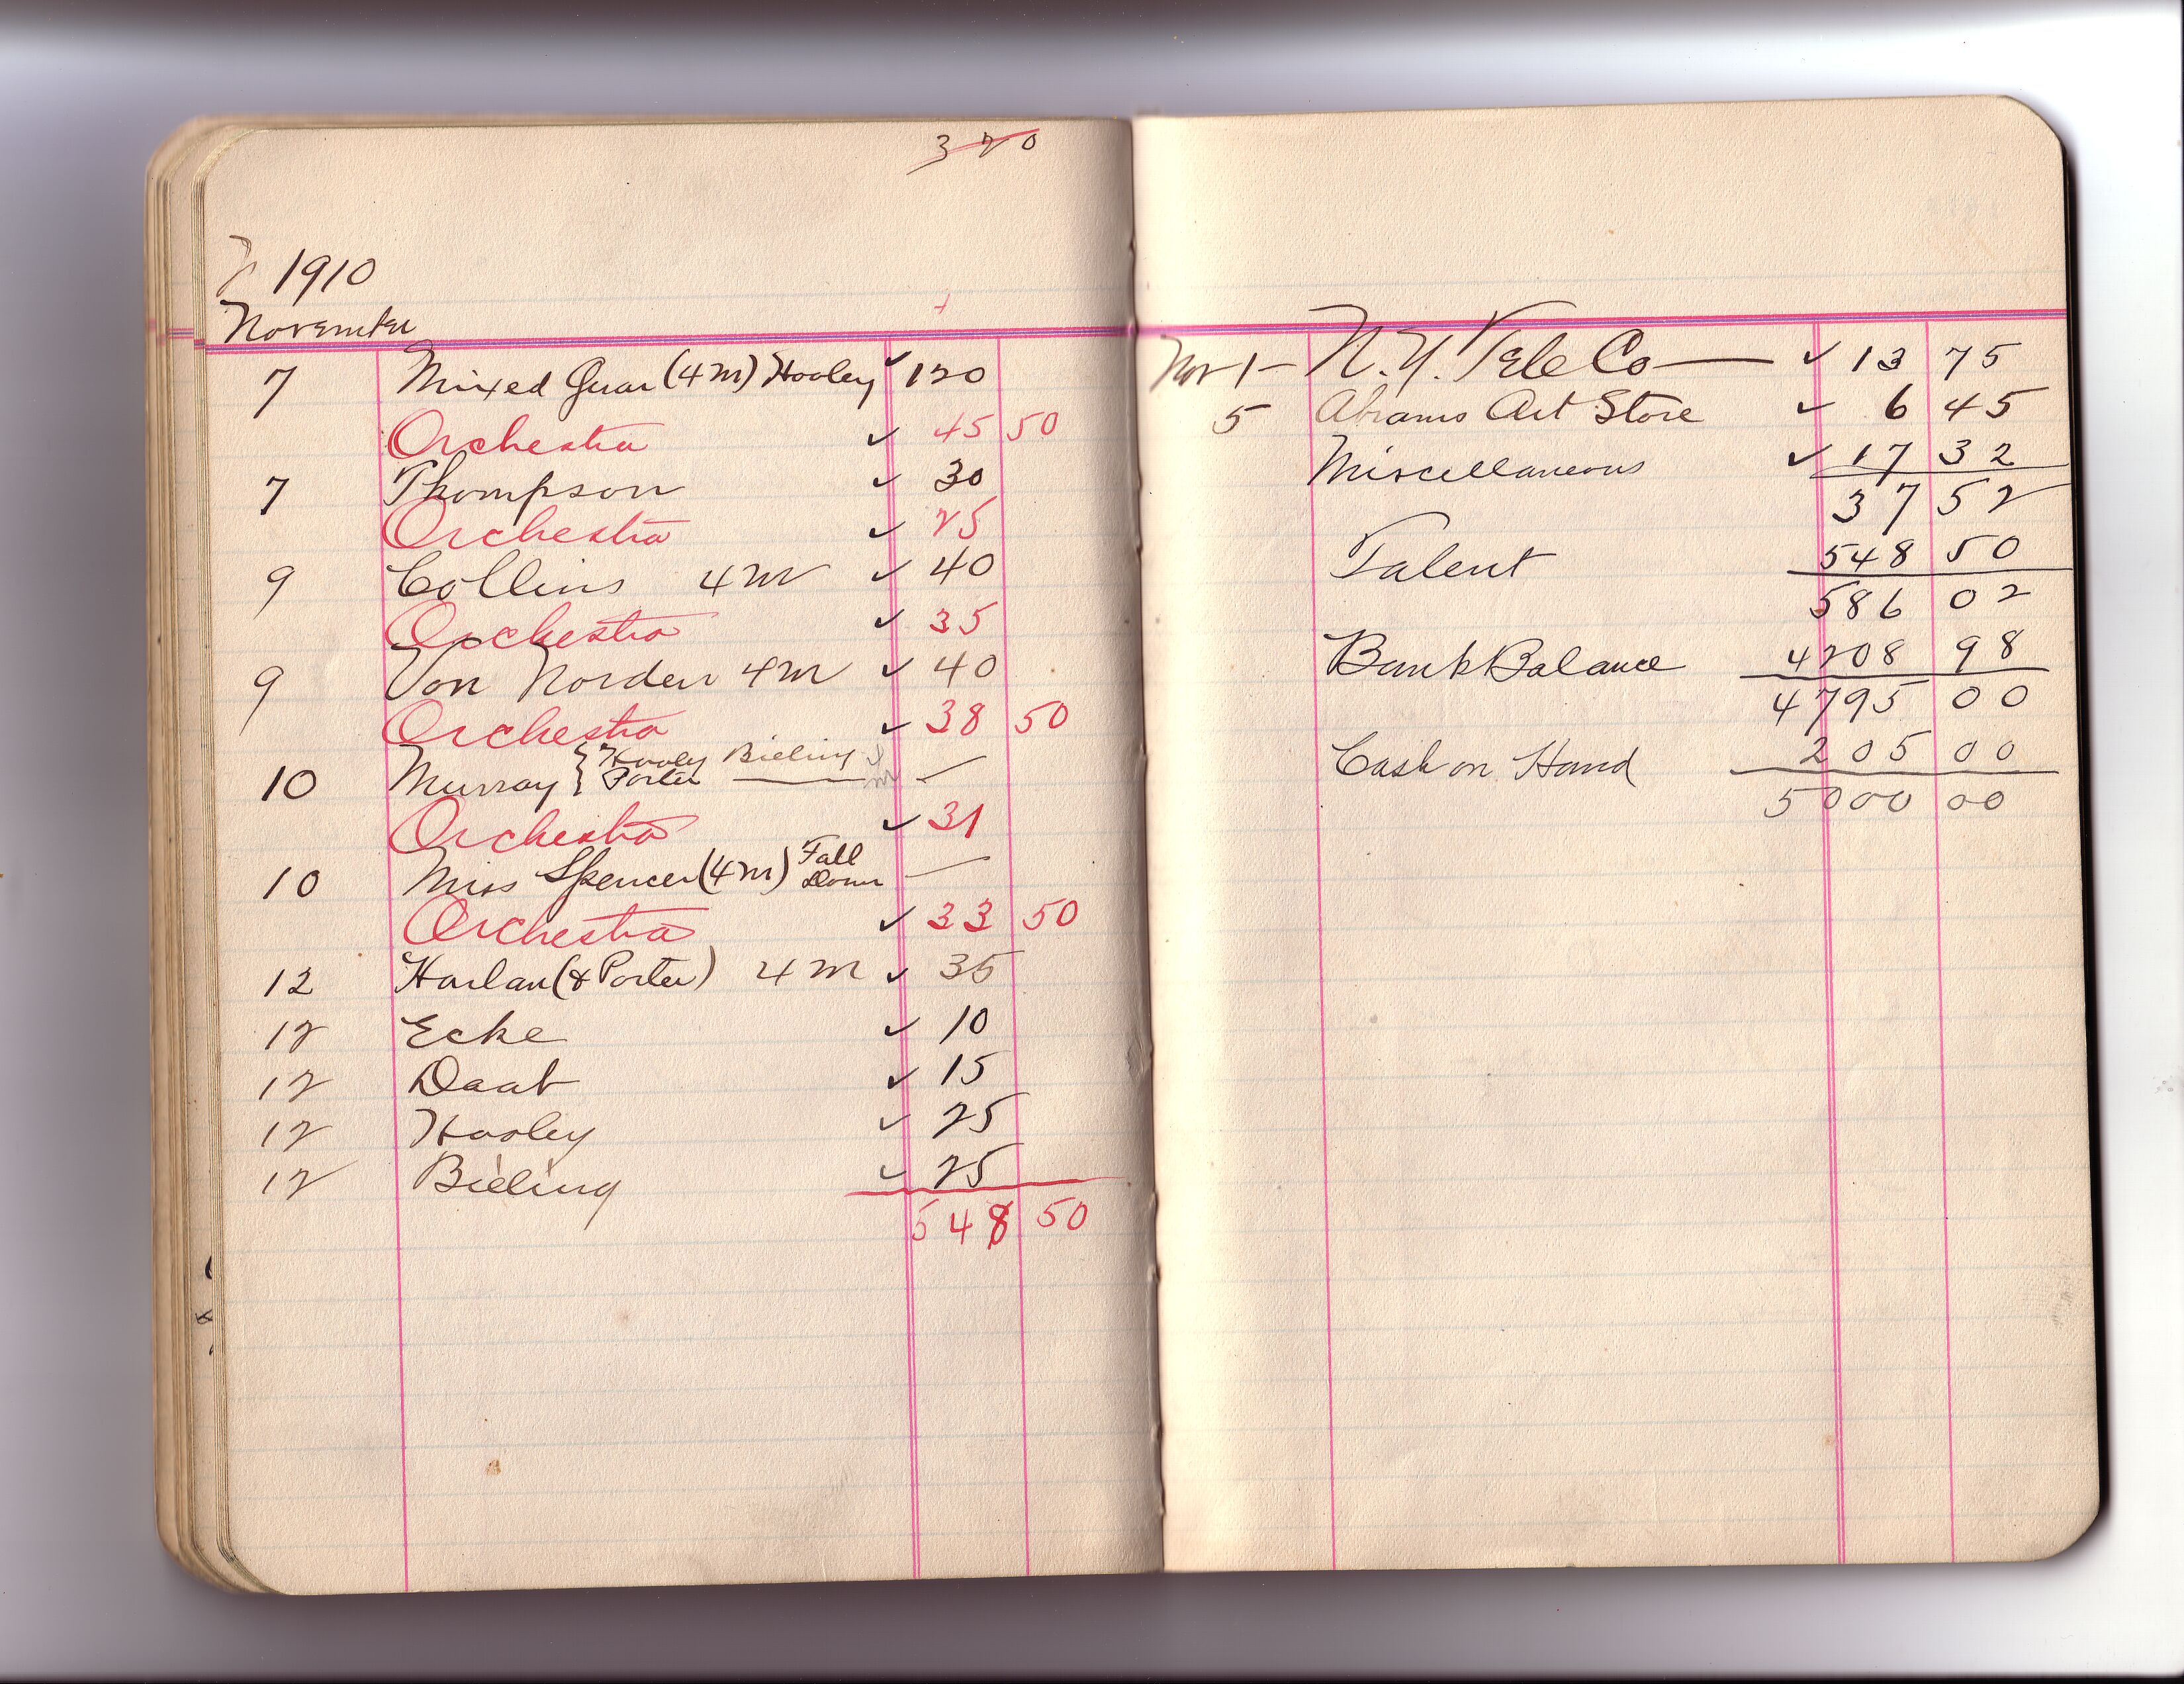 320
1910
November
7 Mixed Quar (4m) Hooley ✓ 120
Orchestra ✓ 45 50
7 Thompson ✓ 30
Orchestra ✓ 25
9 Collins 4m ✓ 40
Orchestra ✓ 35
9 Von Norden 4m ✓ 40
Orchestra ✓ 38 50
10 Murray { Hooley Bieling
Porter —
Orchestra ✓ 31
10 Miss Spencer (4m) Fall Down —
Orchestra ✓ 33 50
12 Harlan (& Porter) 4m ✓ 35
12 Ecke ✓ 10
12 Daab ✓ 15
12 Hooley ✓ 25
12 Bieling ✓ 25
548 50
Nov 1 - N.Y. Tele Co — ✓ 13 75
5 Abrams Art Store ✓ 6 45
Miscellaneous ✓ 17 32
37 52
Talent 548 50
586 02
Bank Balance 4208 98
4795 00
Cash on Hand 205 00
5000 00